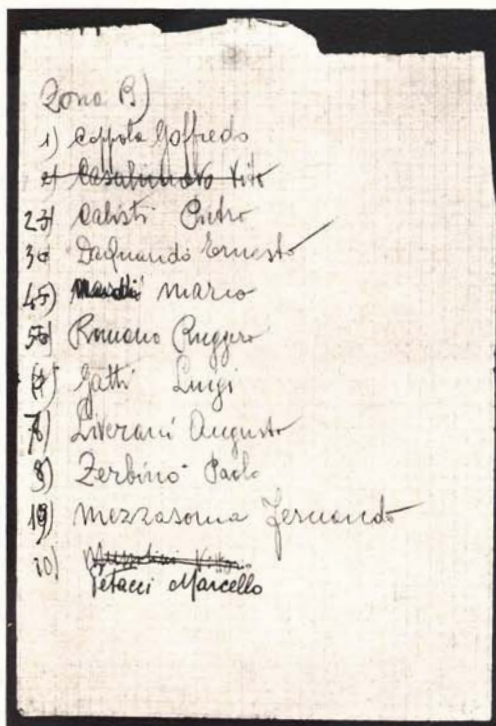 Zona B)
1) Coppola Goffredo
2) Casalinuovo Vito
2 3) Calisti Pietro
3 4) Daquando Ernesto
4 5) Mario
5 6) Romano Ruggero
6 7) Gatti Luigi
7 8) Liverani Augusto
8 9) Zerbino Paolo
9 Mezzasoma Fernando
10) Mussolini
Petacci Marcello